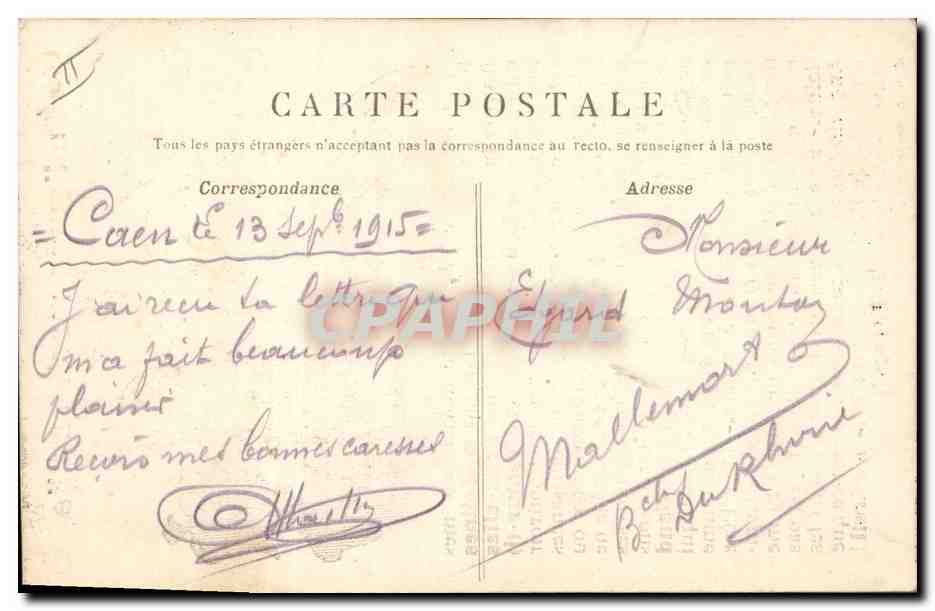 II
CARTE POSTALE
Tous les pays étrangers n'acceptant pas la correspondance au recto, se renseigner à la poste
Correspondance
= Caen le 13 Sepb 1915 =
J'ai recu ta lettre qui
m'a fait beaucoup
plaisir
Reçois mes bonnes caresses
Adresse
Monsieur
Edgard
Mallemort
Bches Du Rhône
CPAPHIL